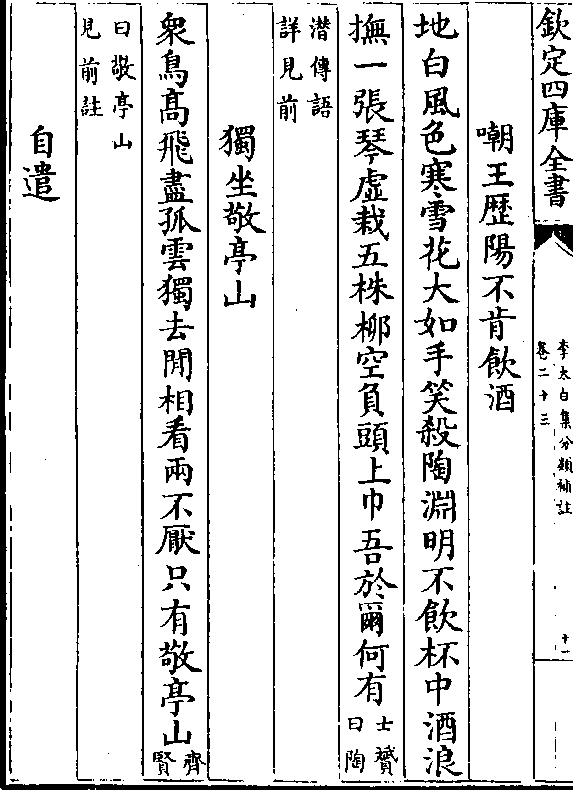 欽定四庫全書
李太白集分類補註
卷二十三
十一
嘲王歴陽不肯飲酒
地白風色寒雪花大如手笑殺陶淵明不飲杯中酒浪
撫一張琴虚栽五株柳空負頭上巾吾於爾何有士贇曰陶
潜傳語
詳見前
獨坐敬亭山
衆鳥髙飛盡孤雲獨去閒相看兩不厭只有敬亭山齊賢
曰敬亭山
見前註
自遣